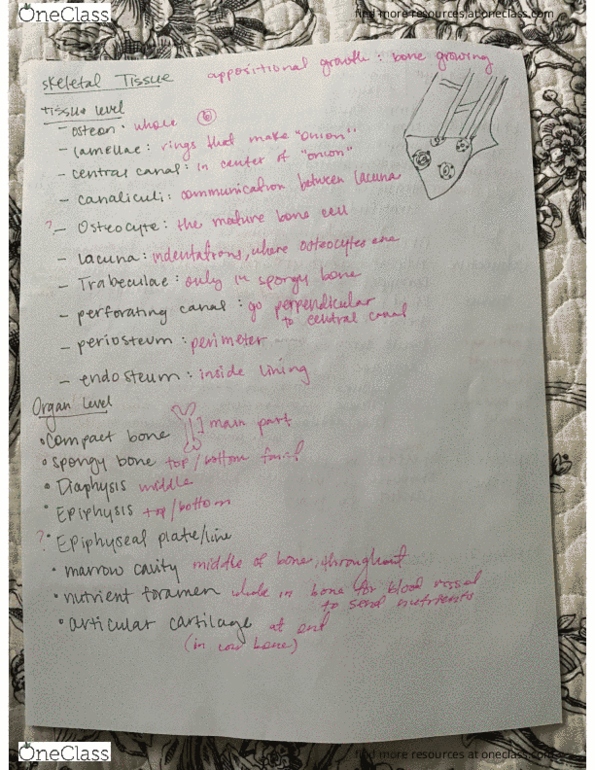 OneClass
find more resources at oneclass.com
Skeletal Tissue
appositional growth : bone growing
tissue level
- osteon : whole
6
- lamellae : rings that make "onion"
- central canal : in center of "onion"
- canaliculi : communication between lacuna
? - Osteocyte : the mature bone cell
- lacuna : indentations, where osteocytes are
- Trabeculae : only in spongy bone
- perforating canal : go perpendicular
to central canal
- periosteum : perimeter
- endosteum : inside lining
Organ Level
• compact bone ] main part
• spongy bone top/bottom
• Diaphysis middle
• Epiphysis top/bottom
? • Epiphyseal plate/line
• marrow cavity middle of bone, throughout
• nutrient foramen whole in bone for blood vessel
to send nutrients
• articular cartilage at end
(in cow bone)
OneClass
find more resources at oneclass.com